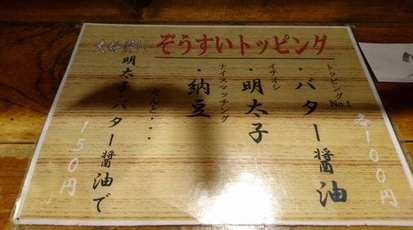 大好評!!
ぞうすいトッピング
トッピングNo.1
・バター醤油
各100円
イチオシ
・明太子
ナイスマッチング
・納豆
なんと・・・
明太子とバター醤油で
150円